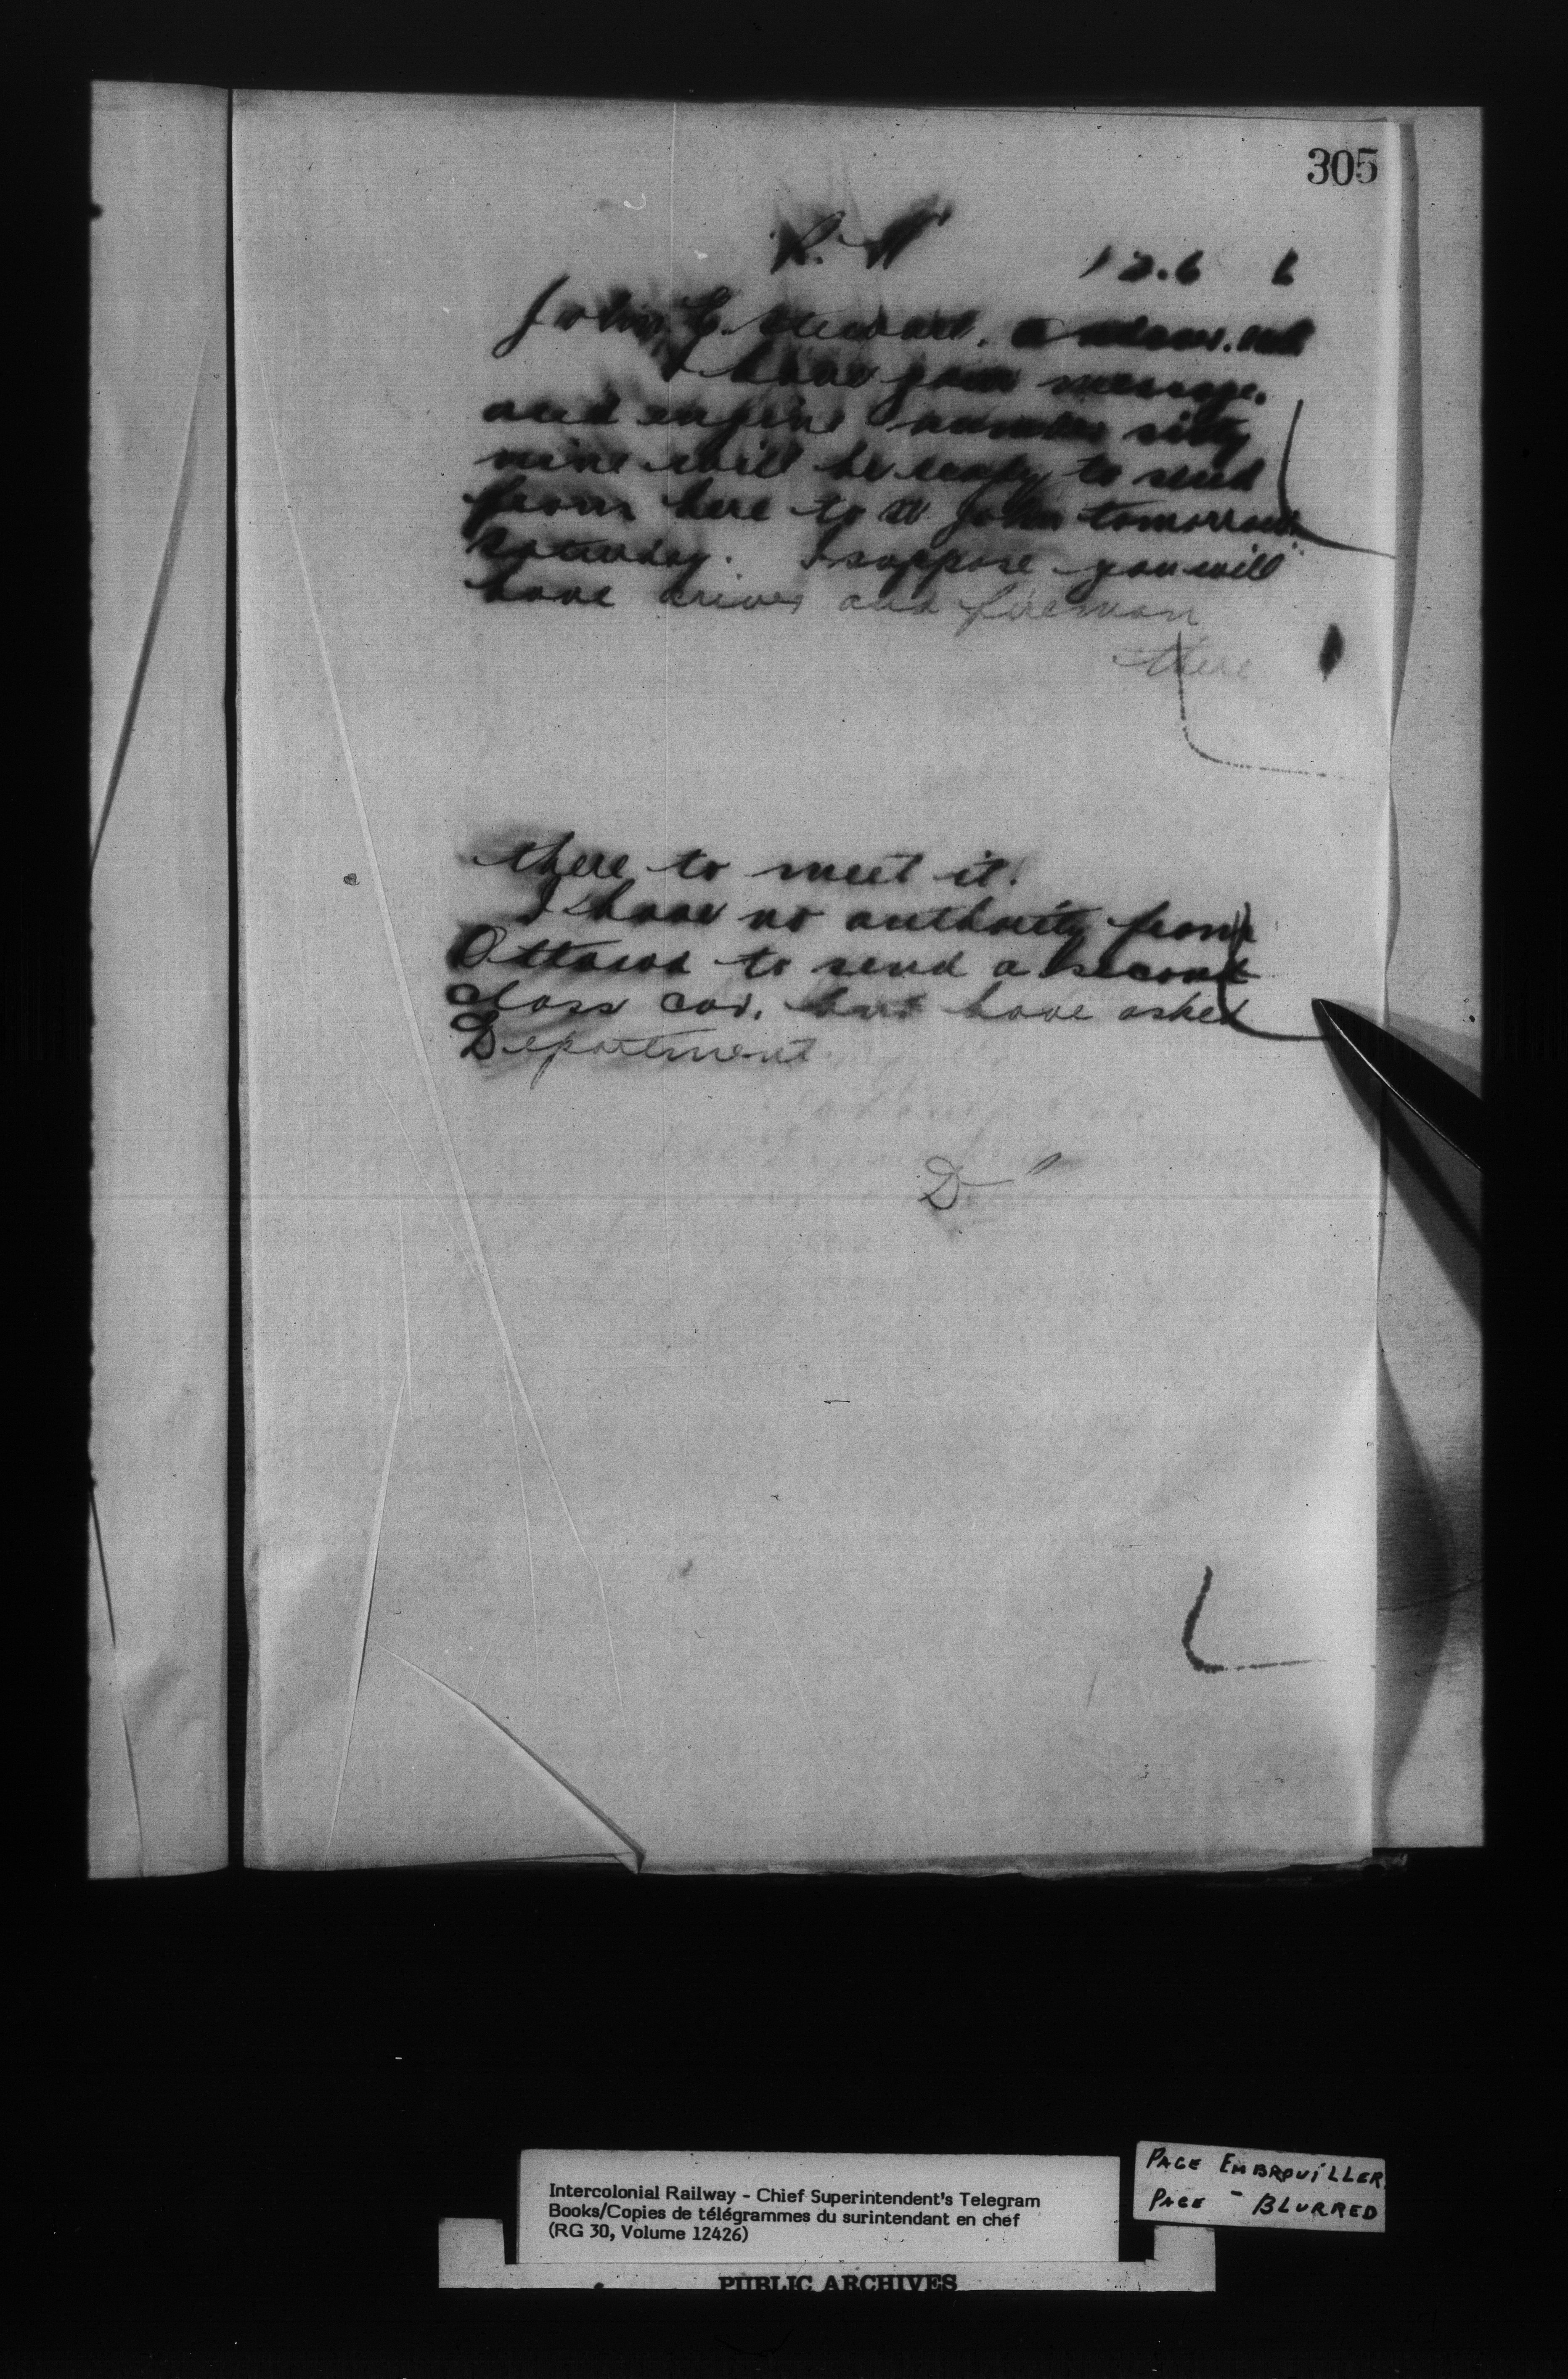 305
R. W
12.6 6
John C. Stewart.
I have your message.
and engine number sixty
nine will be ready to send
from here to St John tomorrow
Saturday. I suppose you will
have driver and fireman
there
there to meet it.
I have no authority from
Ottawa to send a second
class car, but have asked
Department
D
Intercolonial Railway - Chief Superintendent's Telegram
Books/Copies de télégrammes du surintendant en chef
(RG 30, Volume 12426)
PAGE EMBROUILLER
PAGE - BLURRED
PUBLIC ARCHIVES